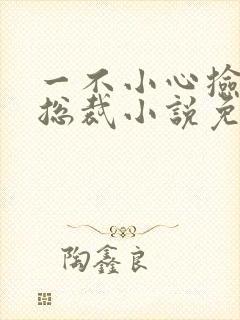 一不小心撿
总裁小說免
陶鑫良